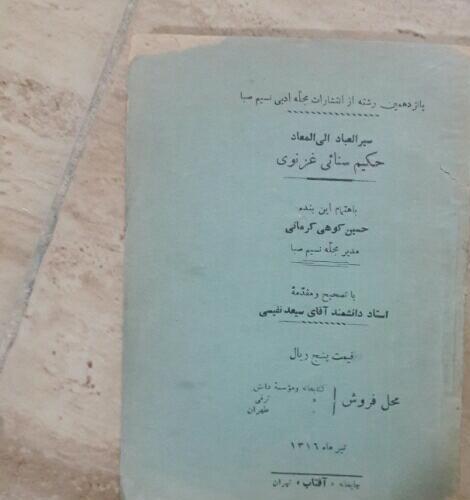 پانزدهمین رشته از انتشارات مجله ادبی نسیم صبا
سیرالعباد الی‌المعاد
حکیم سنائی غزنوی
باهتمام این بنده
حسین کوهی کرمانی
مدیر مجله نسیم صبا
با تصحیح و مقدمهٔ
استاد دانشمند آقای سعید نفیسی
قیمت پنج ریال
محل فروش
کتابخانه و مؤسسهٔ دانش
» ترقی
» طهران
تیر ماه ۱۳۱۶
چاپخانه «آفتاب» تهران